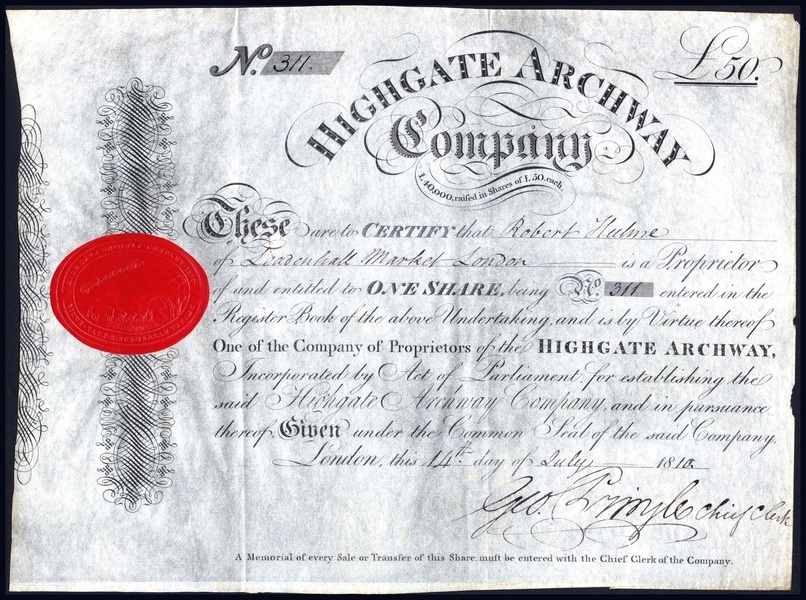 No. 311.
£50.
HIGHGATE ARCHWAY
Company.
L40,000, raiſed in Shares of L50. each.
These are to CERTIFY that Robert Hulme
of Leadenhall Market London is a Proprietor
of and entitled to ONE SHARE, being No. 311 entered in the
Register Book of the above Undertaking, and is by Virtue thereof
One of the Company of Proprietors of the HIGHGATE ARCHWAY,
Incorporated by Act of Parliament, for establishing the
said Highgate Archway Company, and in pursuance
thereof Given under the Common Seal of the said Company,
London, this 14th day of July 1810.
Geo. Pringle chief clerk
A Memorial of every Sale or Transfer of this Share, muſt be entered with the Chief Clerk of the Company.